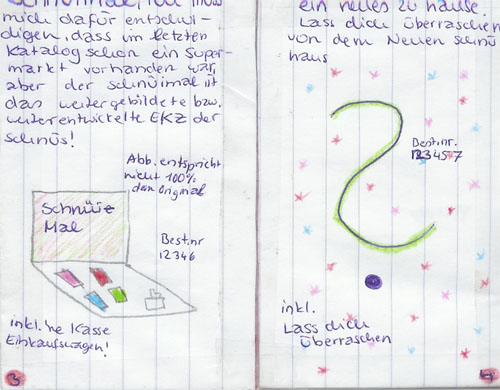 mich dafür entschul-
digen, dass im letzten
Katalog schon ein Super-
markt vorhanden war,
aber der schnümal ist
das weitergebildete bzw.
weiterentwickelte EKZ der
schnüs!
Abb. entspricht
nicht 100%
dem Original
Schnüüz
Mal
Best.nr
12346
inkl. 'ne Kasse
Einkaufswagen!
3
ein neues zu hause.
Lass dich überraschen
von dem Neuen schnü
haus
Best.nr.
123457
inkl.
Lass dich
überraschen
4